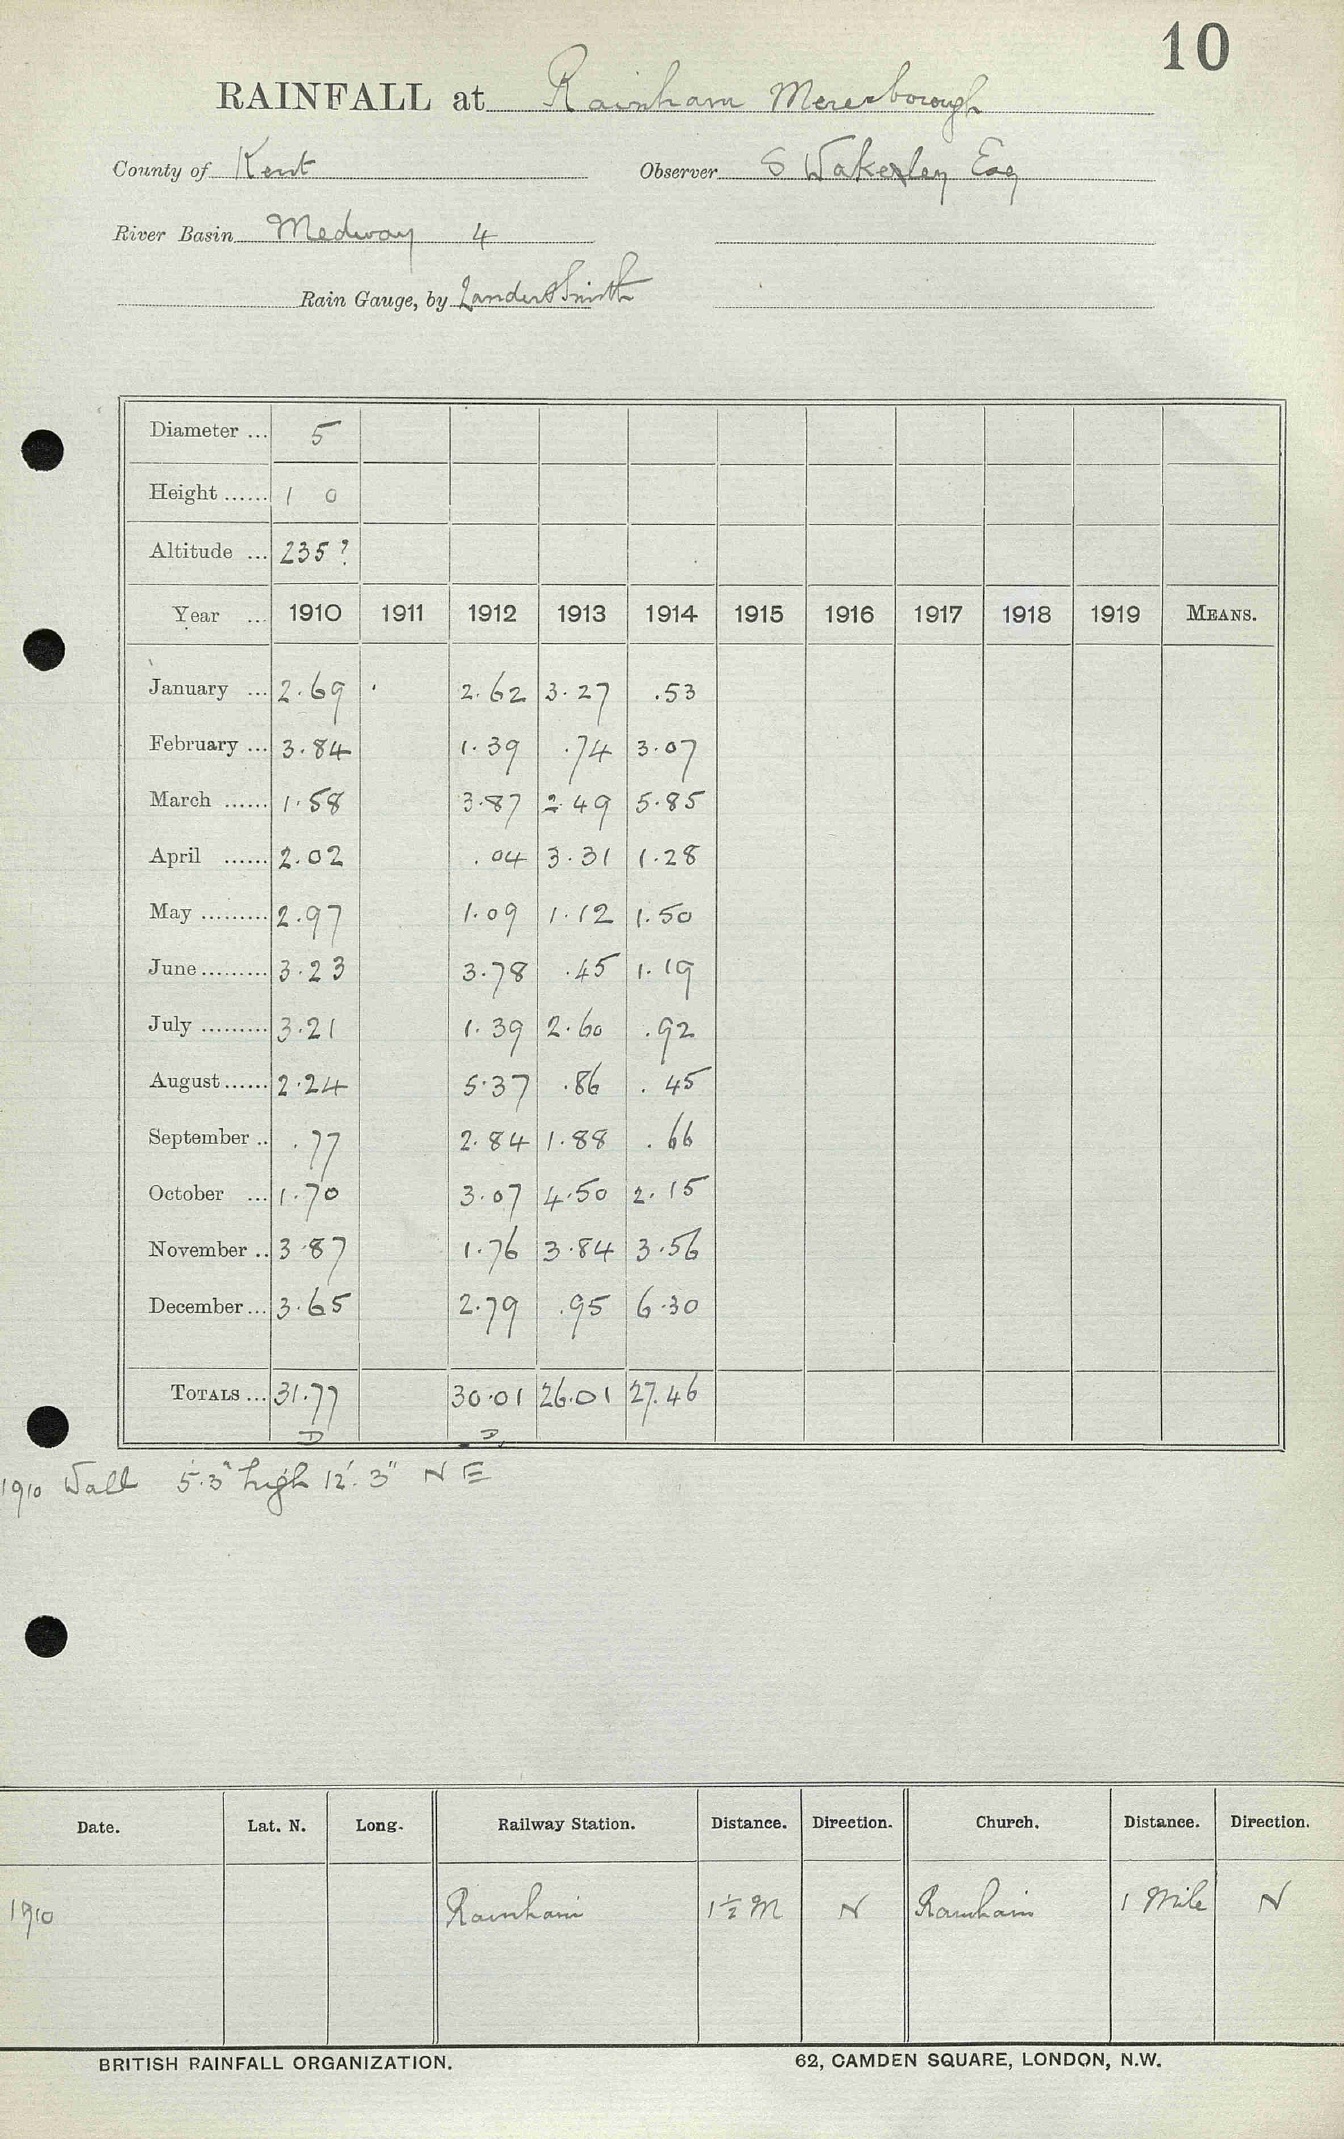 10
RAINFALL at Rainham Meresborough
County of Kent Observer S Wakerley Esq
River Basin Medway 4
Rain Gauge, by Lander & Smith
Diameter ... 5
Height ...... 1 0
Altitude ... 235 ?
Year ... 1910 1911 1912 1913 1914 1915 1916 1917 1918 1919 MEANS.
January ... 2.69 2.62 3.27 .53
February ... 3.84 1.39 .74 3.07
March ...... 1.58 3.87 2.49 5.85
April ...... 2.02 .04 3.31 1.28
May ......... 2.97 1.09 1.12 1.50
June ......... 3.23 3.78 .45 1.19
July ......... 3.21 1.39 2.60 .92
August ...... 2.24 5.37 .86 .45
September .. .77 2.84 1.88 .66
October ... 1.70 3.07 4.50 2.15
November .. 3.87 1.76 3.84 3.56
December ... 3.65 2.79 .95 6.30
TOTALS ... 31.77 30.01 26.01 27.46
D D
1910 Wall 5'.3" high 12'.3" N E
Date. Lat. N. Long. Railway Station. Distance. Direction. Church. Distance. Direction.
1910 Rainham 1½ M N Rainham 1 Mile N
BRITISH RAINFALL ORGANIZATION. 62, CAMDEN SQUARE, LONDON, N.W.